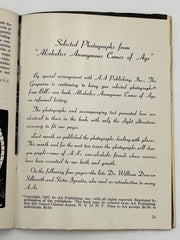 Selected Photographs from
"Alcoholics Anonymous Comes of Age"
By special arrangement with A.A. Publishing, Inc. The
Grapevine is continuing to bring you selected photographs*
from Bill's new book, Alcoholics Anonymous Comes of Age,
an informal history.
The photographs and accompanying text presented here are
identical to those in the book, with only the slight alteration
necessary to fit our page.
Last month we published the photographs dealing with places.
This month and for the next two issues the photographs will deal
with people—some of A.A.'s non-alcoholic friends whose services
have been essential to our birth and growth.
On the following two pages: the late Dr. William Duncan
Silkworth and Sister Ignatia, who used no introduction to many
A.A.'s.
*Copyright, 1957, by AA Publishing, Inc., with all rights reserved. Reprinted by
permission of the publishers. The book may be ordered from AA Publishing, Inc.,
Box 459 Grand Central Annex, N. Y. 17, N. Y. Price to AA groups, $3.50;
individuals, $4.00.
31